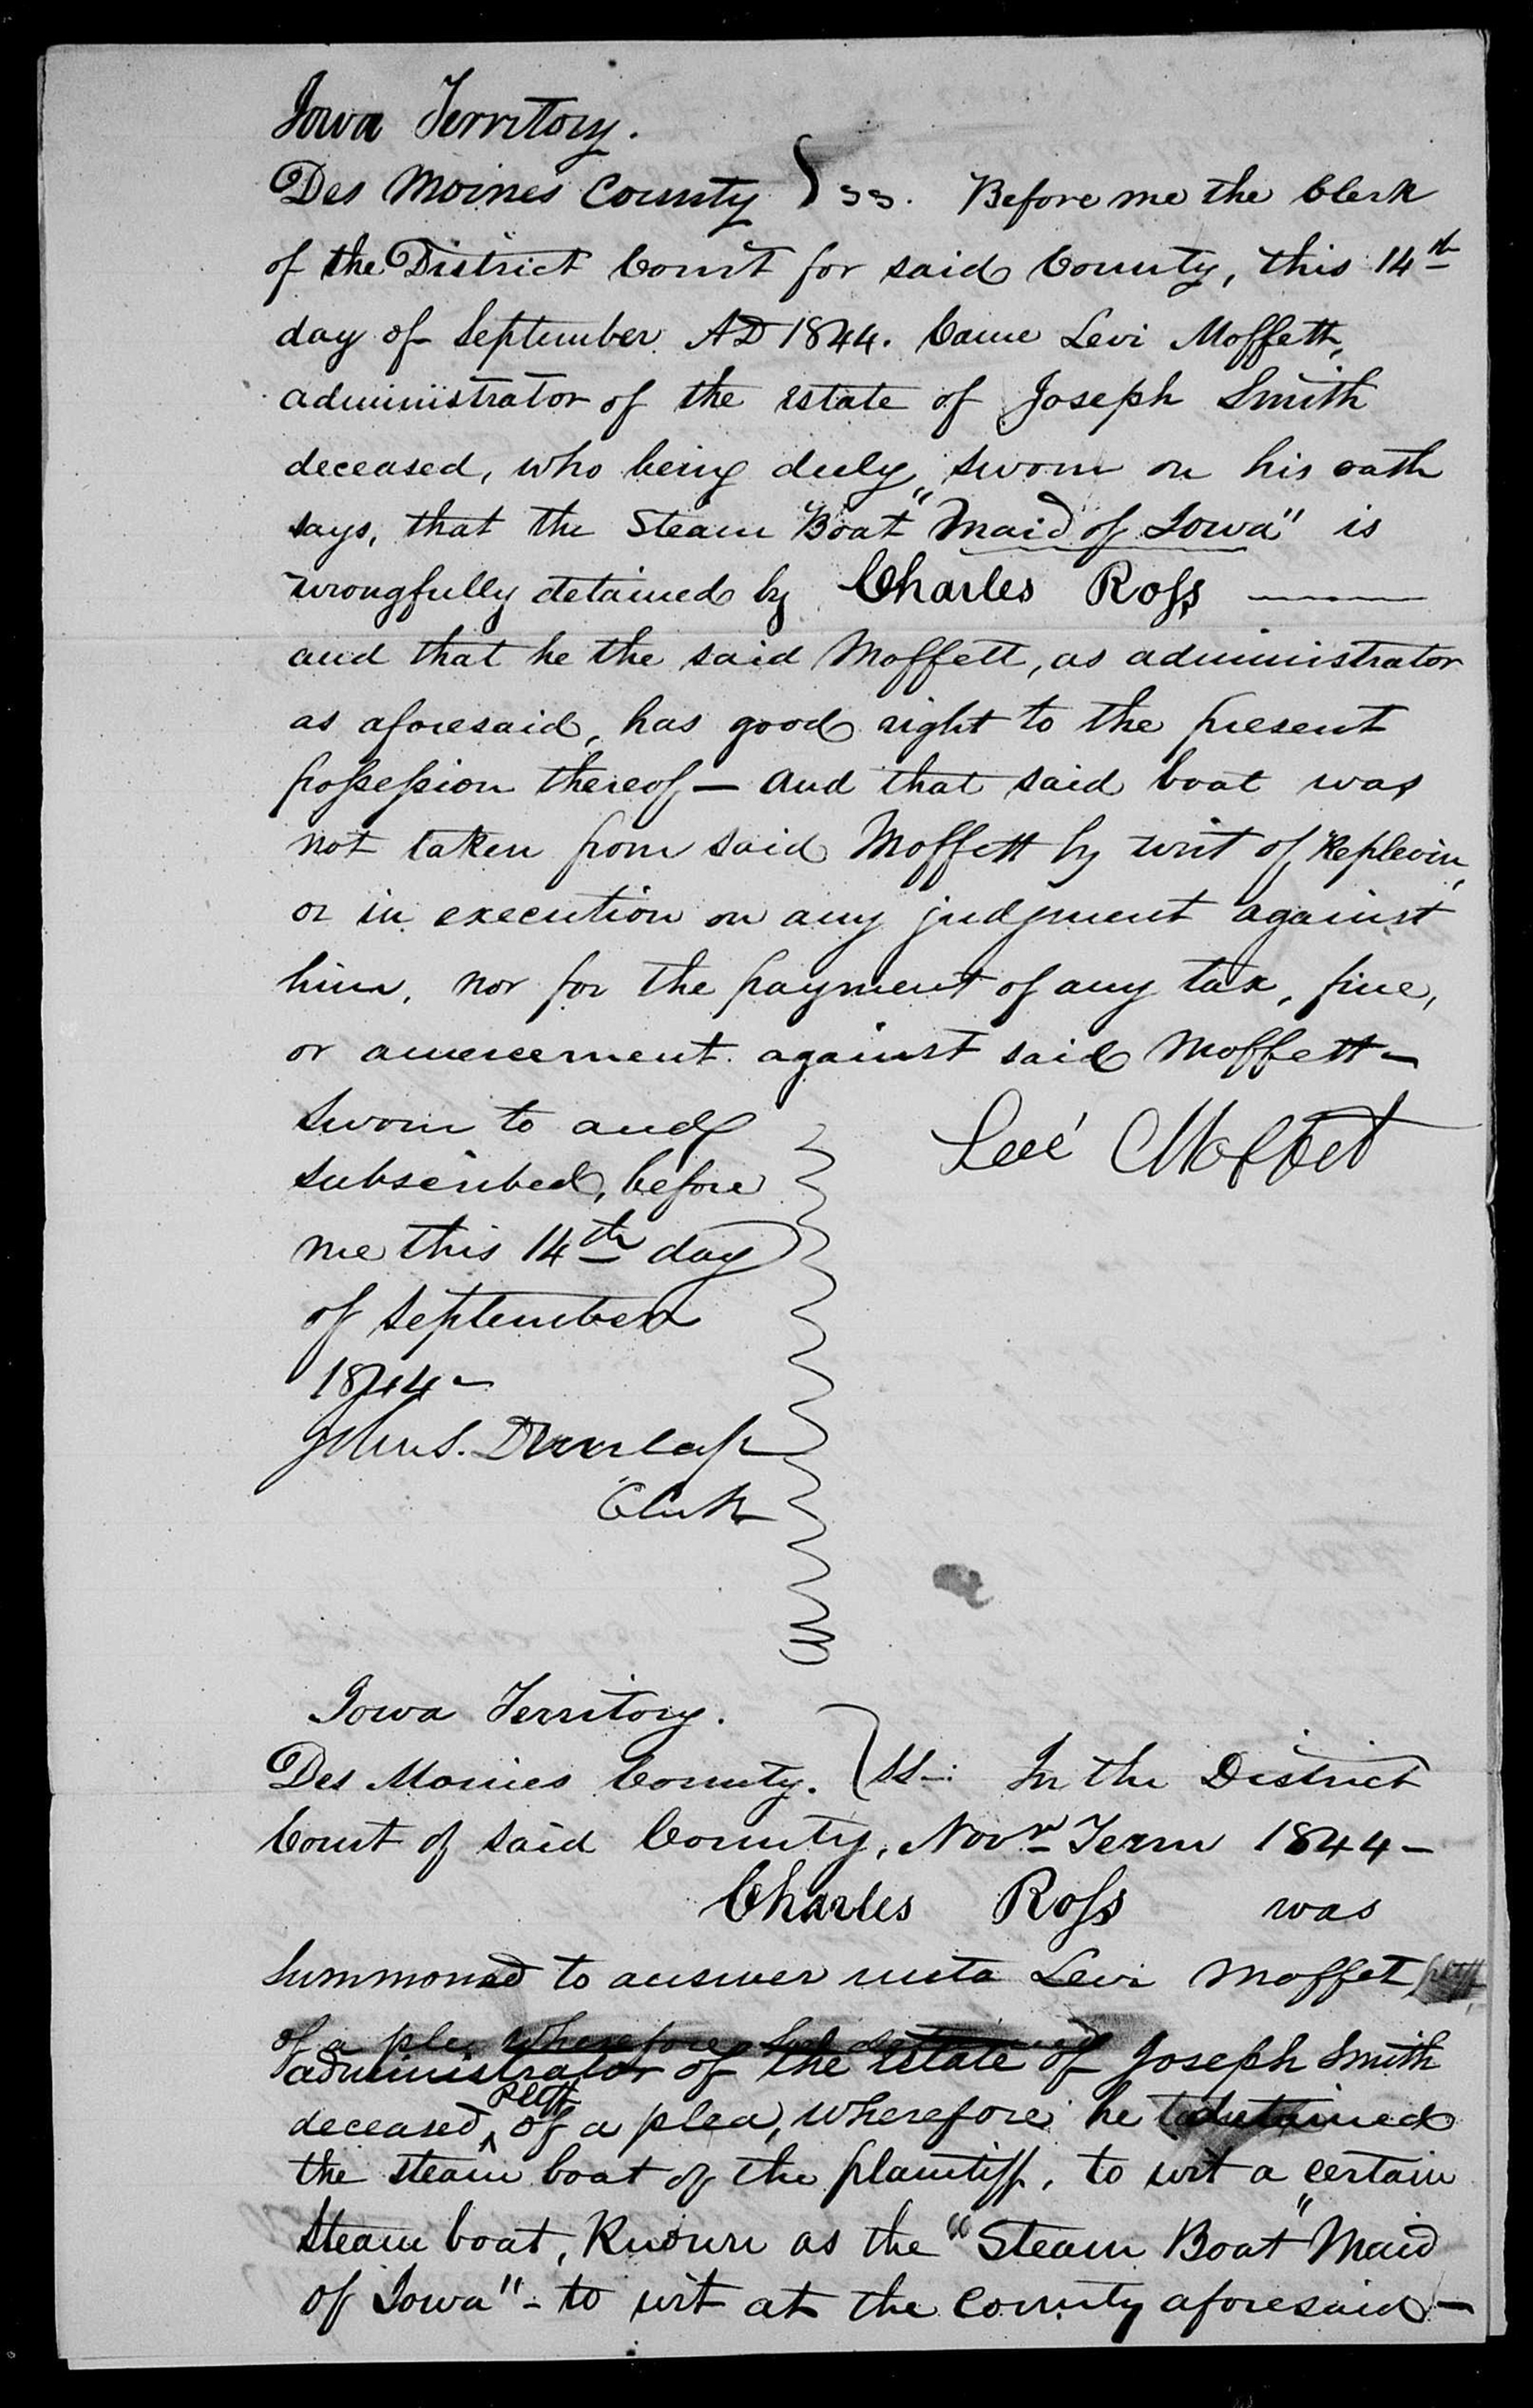 Iowa Territory.
Des Moines County } ss. Before me the Clerk
of the District Court for said County, this 14th
day of September AD 1844. Came Levi Moffett,
administrator of the estate of Joseph Smith
deceased, who being duly sworn on his oath
says, that the Steam Boat "Maid of Iowa" is
wrongfully detained by Charles Ross ———
and that he the said Moffett, as administrator
as aforesaid, has good right to the present
possession thereof — and that said boat was
not taken from said Moffett by writ of Replevin,
or in execution on any judgment against
him, nor for the payment of any tax, fine,
or amercement against said Moffett —
Sworn to and
subscribed, before
me this 14th day
of September
1844 —
John S. Dunlap
Clerk
Levi Moffet
Iowa Territory.
Des Moines County. } SS: In the District
Court of said County, Novr Term 1844 —
Charles Ross was
Summoned to answer unto Levi Moffet
of a plea wherefore
administrator of the estate of Joseph Smith
deceased, Plff
of a plea, wherefore he detained
the steam boat of the plaintiff, to wit a certain
Steam boat, Known as the "Steam Boat "Maid
of Iowa" - to wit at the County aforesaid —